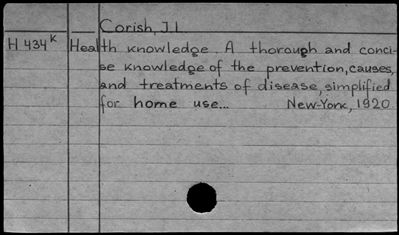 Corish, J.I.
H 434ᴷ Health knowledge. A thorough and conci-
se knowledge of the prevention, causes,
and treatments of disease, simplified
for home use... New-York, 1920